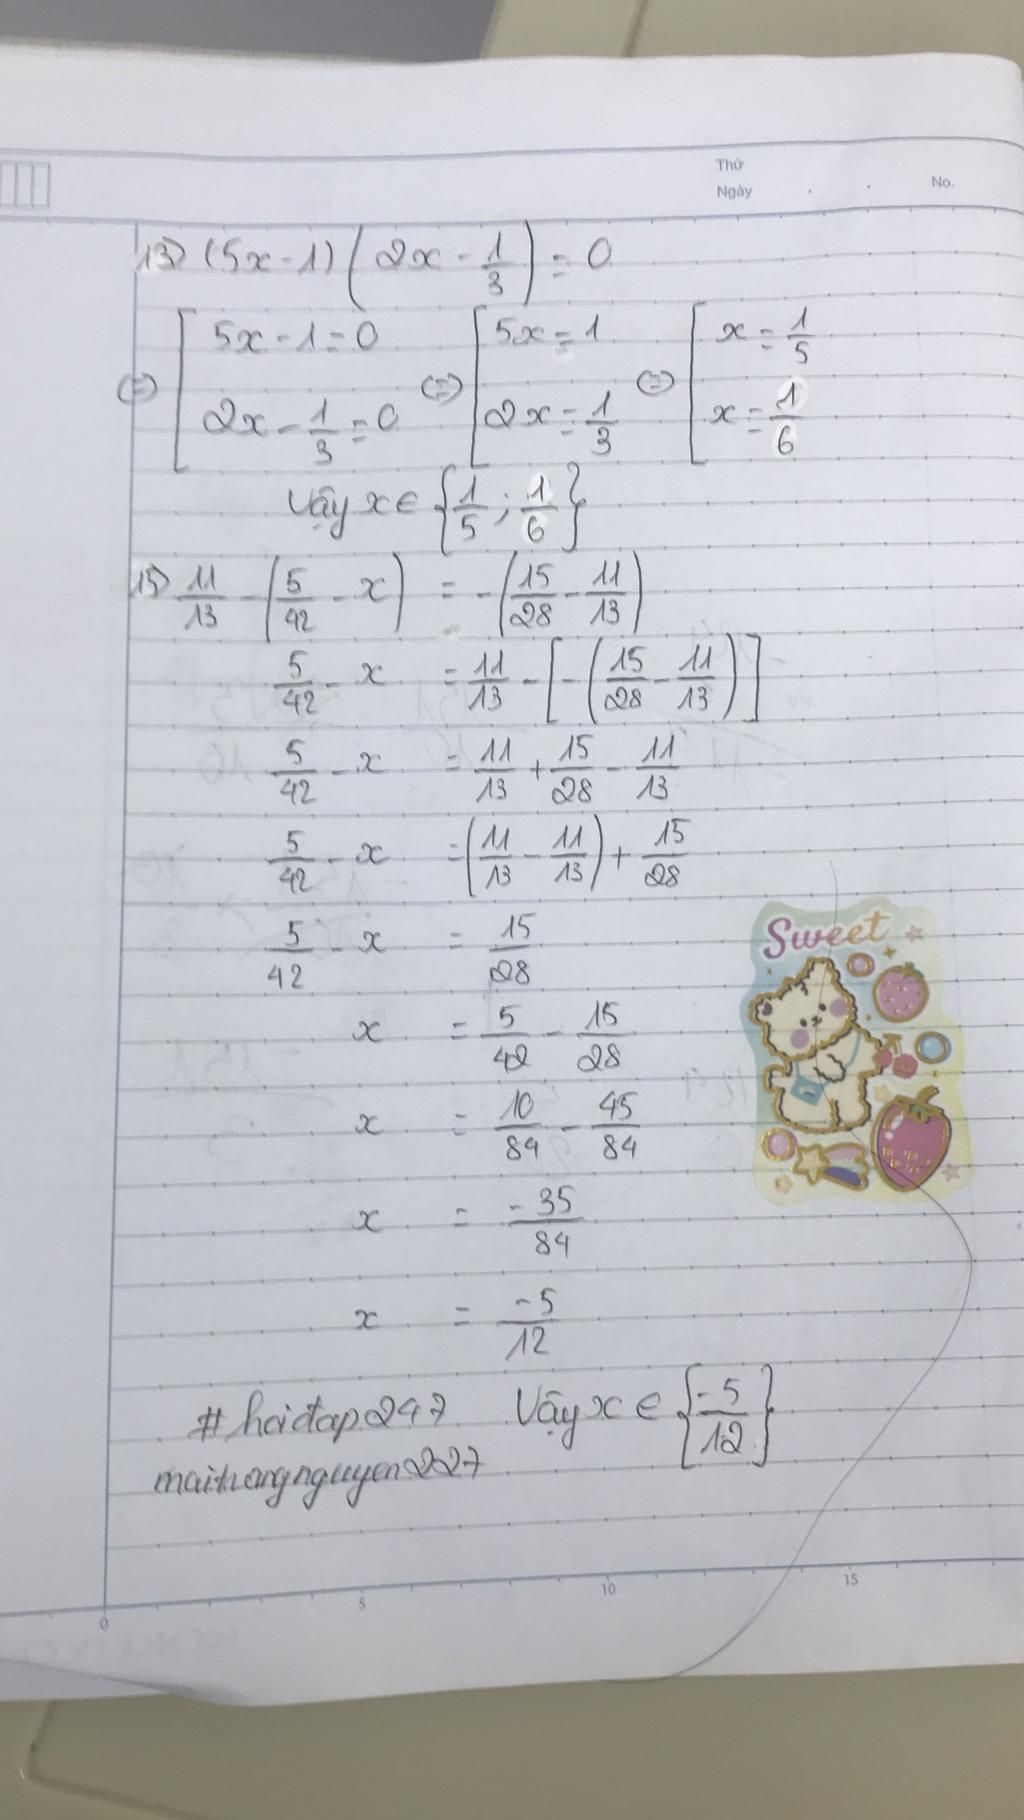 Thứ
Ngày . . No.
13) (5x - 1) (2x - 1/3) = 0
<=> [ 5x - 1 = 0 <=> [ 5x = 1 <=> [ x = 1/5
2x - 1/3 = 0 2x = 1/3 x = 1/6
Vậy x ∈ {1/5 ; 1/6}
15) 11/13 - (5/42 - x) = - (15/28 - 11/13)
5/42 - x = 11/13 - [ - (15/28 - 11/13) ]
5/42 - x = 11/13 + 15/28 - 11/13
5/42 - x = (11/13 - 11/13) + 15/28
5/42 - x = 15/28
Sweet
x = 5/42 - 15/28
x = 10/84 - 45/84
x = -35/84
x = -5/12
#hoidap247 Vậy x ∈ {-5/12}
maitrangnguyen227
0 5 10 15